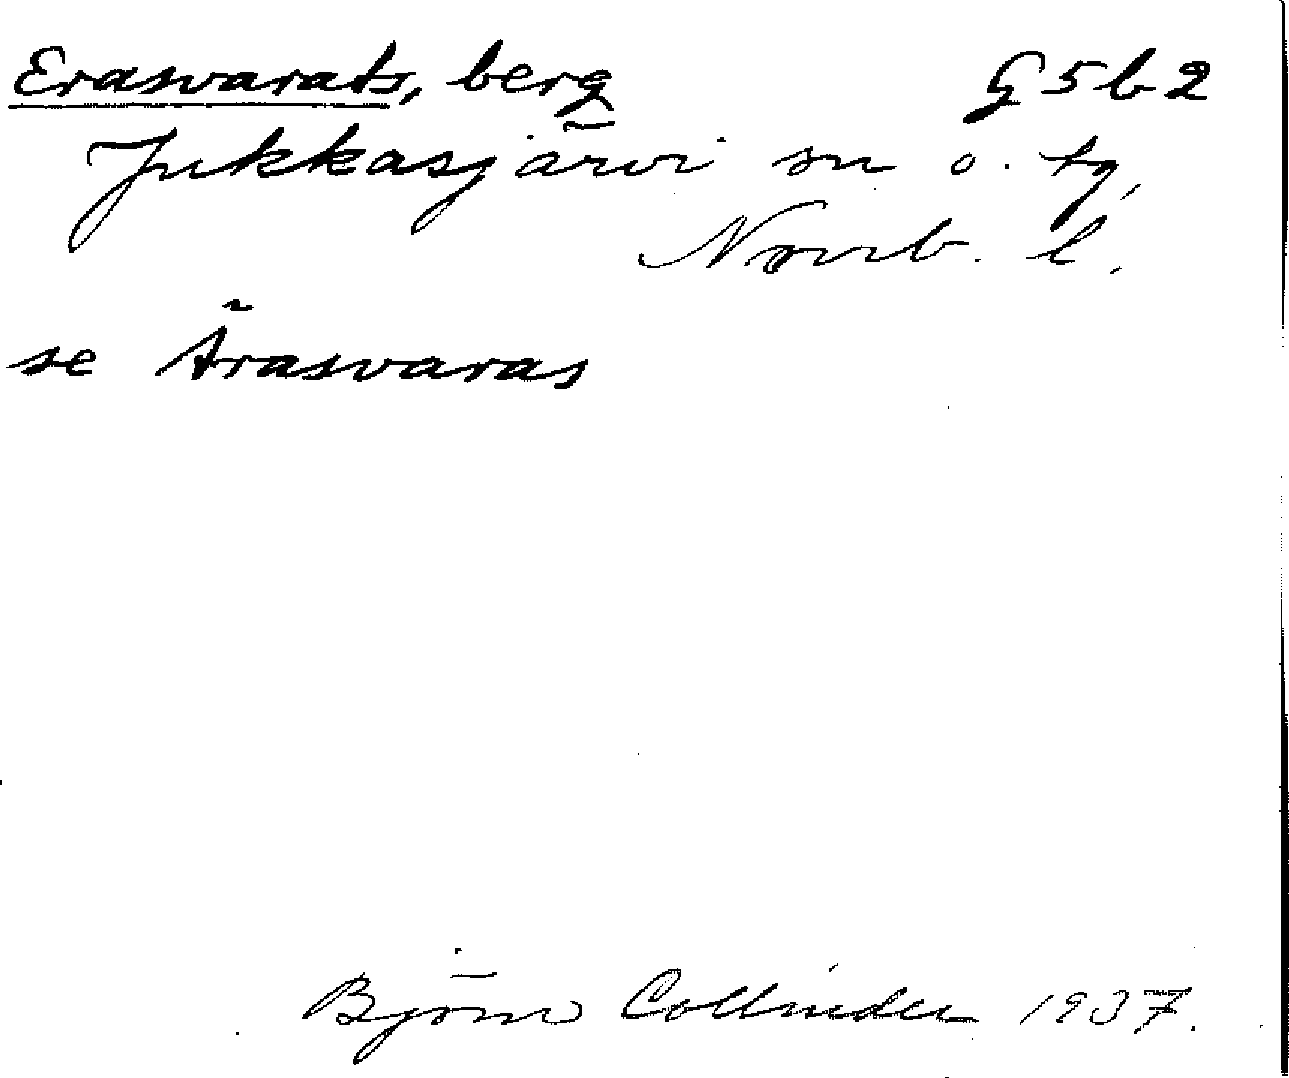 Erasvarats, berg G5b2
Jukkasjärvi sn o. tg,
Norrb. l.
se Ärasvaras
Björn Collinder 1937.